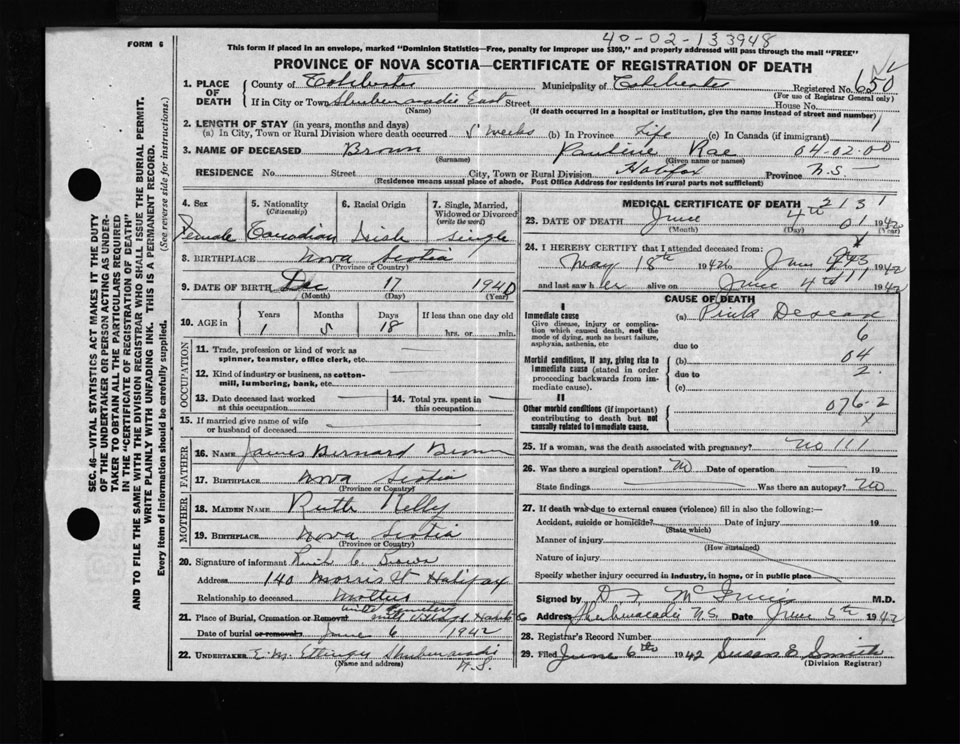 40-02-133948
FORM 6
This form if placed in an envelope, marked "Dominion Statistics—Free, penalty for improper use $300," and properly addressed will pass through the mail "FREE"
PROVINCE OF NOVA SCOTIA—CERTIFICATE OF REGISTRATION OF DEATH
1. PLACE OF DEATH County of Colchester Municipality of Colchester Registered No. 650
(For use of Registrar General only)
If in City or Town Shubenacadie East Street House No.
(Name) (If death occurred in a hospital or institution, give the name instead of street and number)
2. LENGTH OF STAY (in years, months and days)
(a) In City, Town or Rural Division where death occurred 5 weeks (b) In Province Life (c) In Canada (if immigrant)
3. NAME OF DECEASED Brown Pauline Rae 04-02-00
(Surname) (Given name or names)
RESIDENCE No. Street City, Town or Rural Division Halifax Province N.S.
(Residence means usual place of abode. Post Office Address for residents in rural parts not sufficient)
SEC. 46—VITAL STATISTICS ACT MAKES IT THE DUTY
OF THE UNDERTAKER OR PERSON ACTING AS UNDER-
TAKER TO OBTAIN ALL THE PARTICULARS REQUIRED
IN THE "CERTIFICATE OF REGISTRATION OF DEATH"
AND TO FILE THE SAME WITH THE DIVISION REGISTRAR WHO SHALL ISSUE THE BURIAL PERMIT.
WRITE PLAINLY WITH UNFADING INK. THIS IS A PERMANENT RECORD.
Every item of information should be carefully supplied. (See reverse side for instructions.)
4. Sex 5. Nationality (Citizenship) 6. Racial Origin 7. Single, Married, Widowed or Divorced (write the word)
Female Canadian Irish Single
8. BIRTHPLACE Nova Scotia
(Province or Country)
9. DATE OF BIRTH Dec 17 1940
(Month) (Day) (Year)
10. AGE in Years Months Days If less than one day old
1 5 18 hrs. or min.
OCCUPATION
11. Trade, profession or kind of work as spinner, teamster, office clerk, etc.
12. Kind of industry or business, as cotton-mill, lumbering, bank, etc.
13. Date deceased last worked at this occupation 14. Total yrs. spent in this occupation
15. If married give name of wife or husband of deceased
FATHER
16. NAME James Bernard Brown
17. BIRTHPLACE Nova Scotia
(Province or Country)
MOTHER
18. MAIDEN NAME Ruth Kelly
19. BIRTHPLACE Nova Scotia
(Province or Country)
20. Signature of informant
Address 140 Morris St Halifax
Relationship to deceased Mother
21. Place of Burial, Cremation or Removal Cemetery
Date of burial or removal June 6 1942
22. UNDERTAKER E. M. Ettinger Shubenacadie
(Name and address) N.S.
MEDICAL CERTIFICATE OF DEATH 2131
23. DATE OF DEATH June 4th 01 1942
(Month) (Day) (Year)
24. I HEREBY CERTIFY that I attended deceased from:
May 18th 1942 to June 1942
and last saw her alive on June 4th 1942
CAUSE OF DEATH
I
Immediate cause
Give disease, injury or complication which caused death, not the mode of dying, such as heart failure, asphyxia, asthenia, etc
(a) Pink Disease
6
due to
Morbid conditions, if any, giving rise to immediate cause (stated in order proceeding backwards from immediate cause).
(b) 04
due to 2.
(c)
II
Other morbid conditions (if important) contributing to death but not causally related to immediate cause.
076-2
x
25. If a woman, was the death associated with pregnancy? No 111
26. Was there a surgical operation? No Date of operation 19
State findings Was there an autopsy? No
27. If death was due to external causes (violence) fill in also the following:—
Accident, suicide or homicide? Date of injury 19
(State which)
Manner of injury
(How sustained)
Nature of injury
Specify whether injury occurred in industry, in home, or in public place
Signed by D. F. McInnis M.D.
Address Shubenacadie N.S. Date June 5th 1942
28. Registrar's Record Number
29. Filed June 6th 1942 Susan E Smith
(Division Registrar)